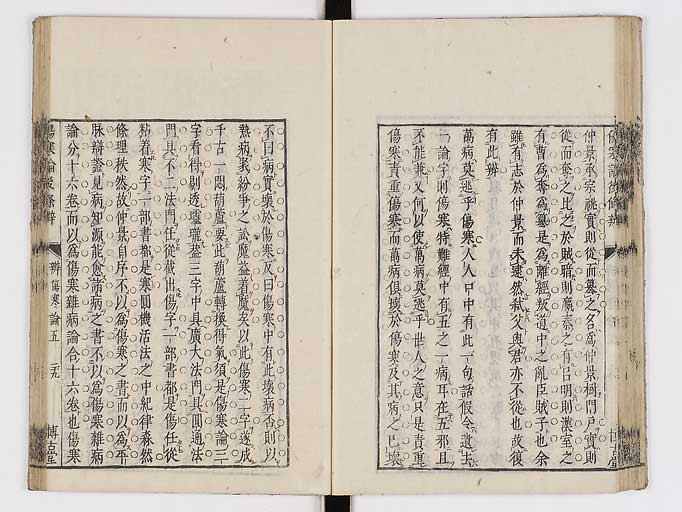 仲景承宗祧實則從而墓之名爲仲景樹門戸實則
從而奪之比之於賊暗則麃秦之有呂明則漢室之
有曹爲奪爲墓是爲離經叛道中之亂臣賊子也余
雖有志於仲景而未逮然弒父與君亦不從也故復
有此辨
萬病莫逃乎傷寒人人口中有此一句話假令遺去
一論字則傷寒特難經中有五之一病耳在五邪且
不能兼又何以使萬病莫逃乎世人之意只是責重
傷寒責重傷寒而萬病俱壞於傷寒及其病之已壞
不曰病實壞於傷寒反曰傷寒中有此壞病否則以
熱病聚紛爭之訟魔益着魔矣以此傷寒二字遂成
千古一悶葫蘆要此葫蘆轉機得氣須是傷寒論三
字看得剔透瓏瓏葢三字中具廣大法門具圓通法
門具不二法門任從截出傷字一部書都是傷任從
粘着寒字一部書都是寒圓機活法之中紀律森然
條理秩然故仲景自序不以爲傷寒之書而以爲平
脉辯證見病知源能愈諸病之書不以爲傷寒雜病
論分十六卷而以爲傷寒雜病論合十六卷也傷寒
傷寒論後條辨
辨傷寒論五
二十九
博古堂